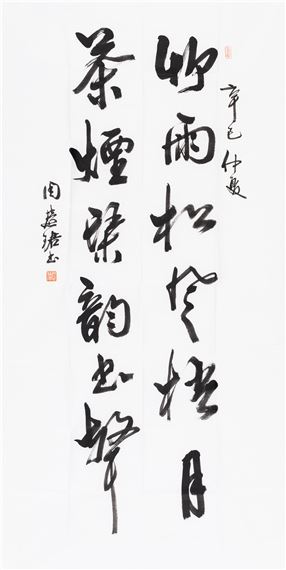 辛巳仲夏
竹雨松风梧月
茶煙琴韵书聲
周慧珺书